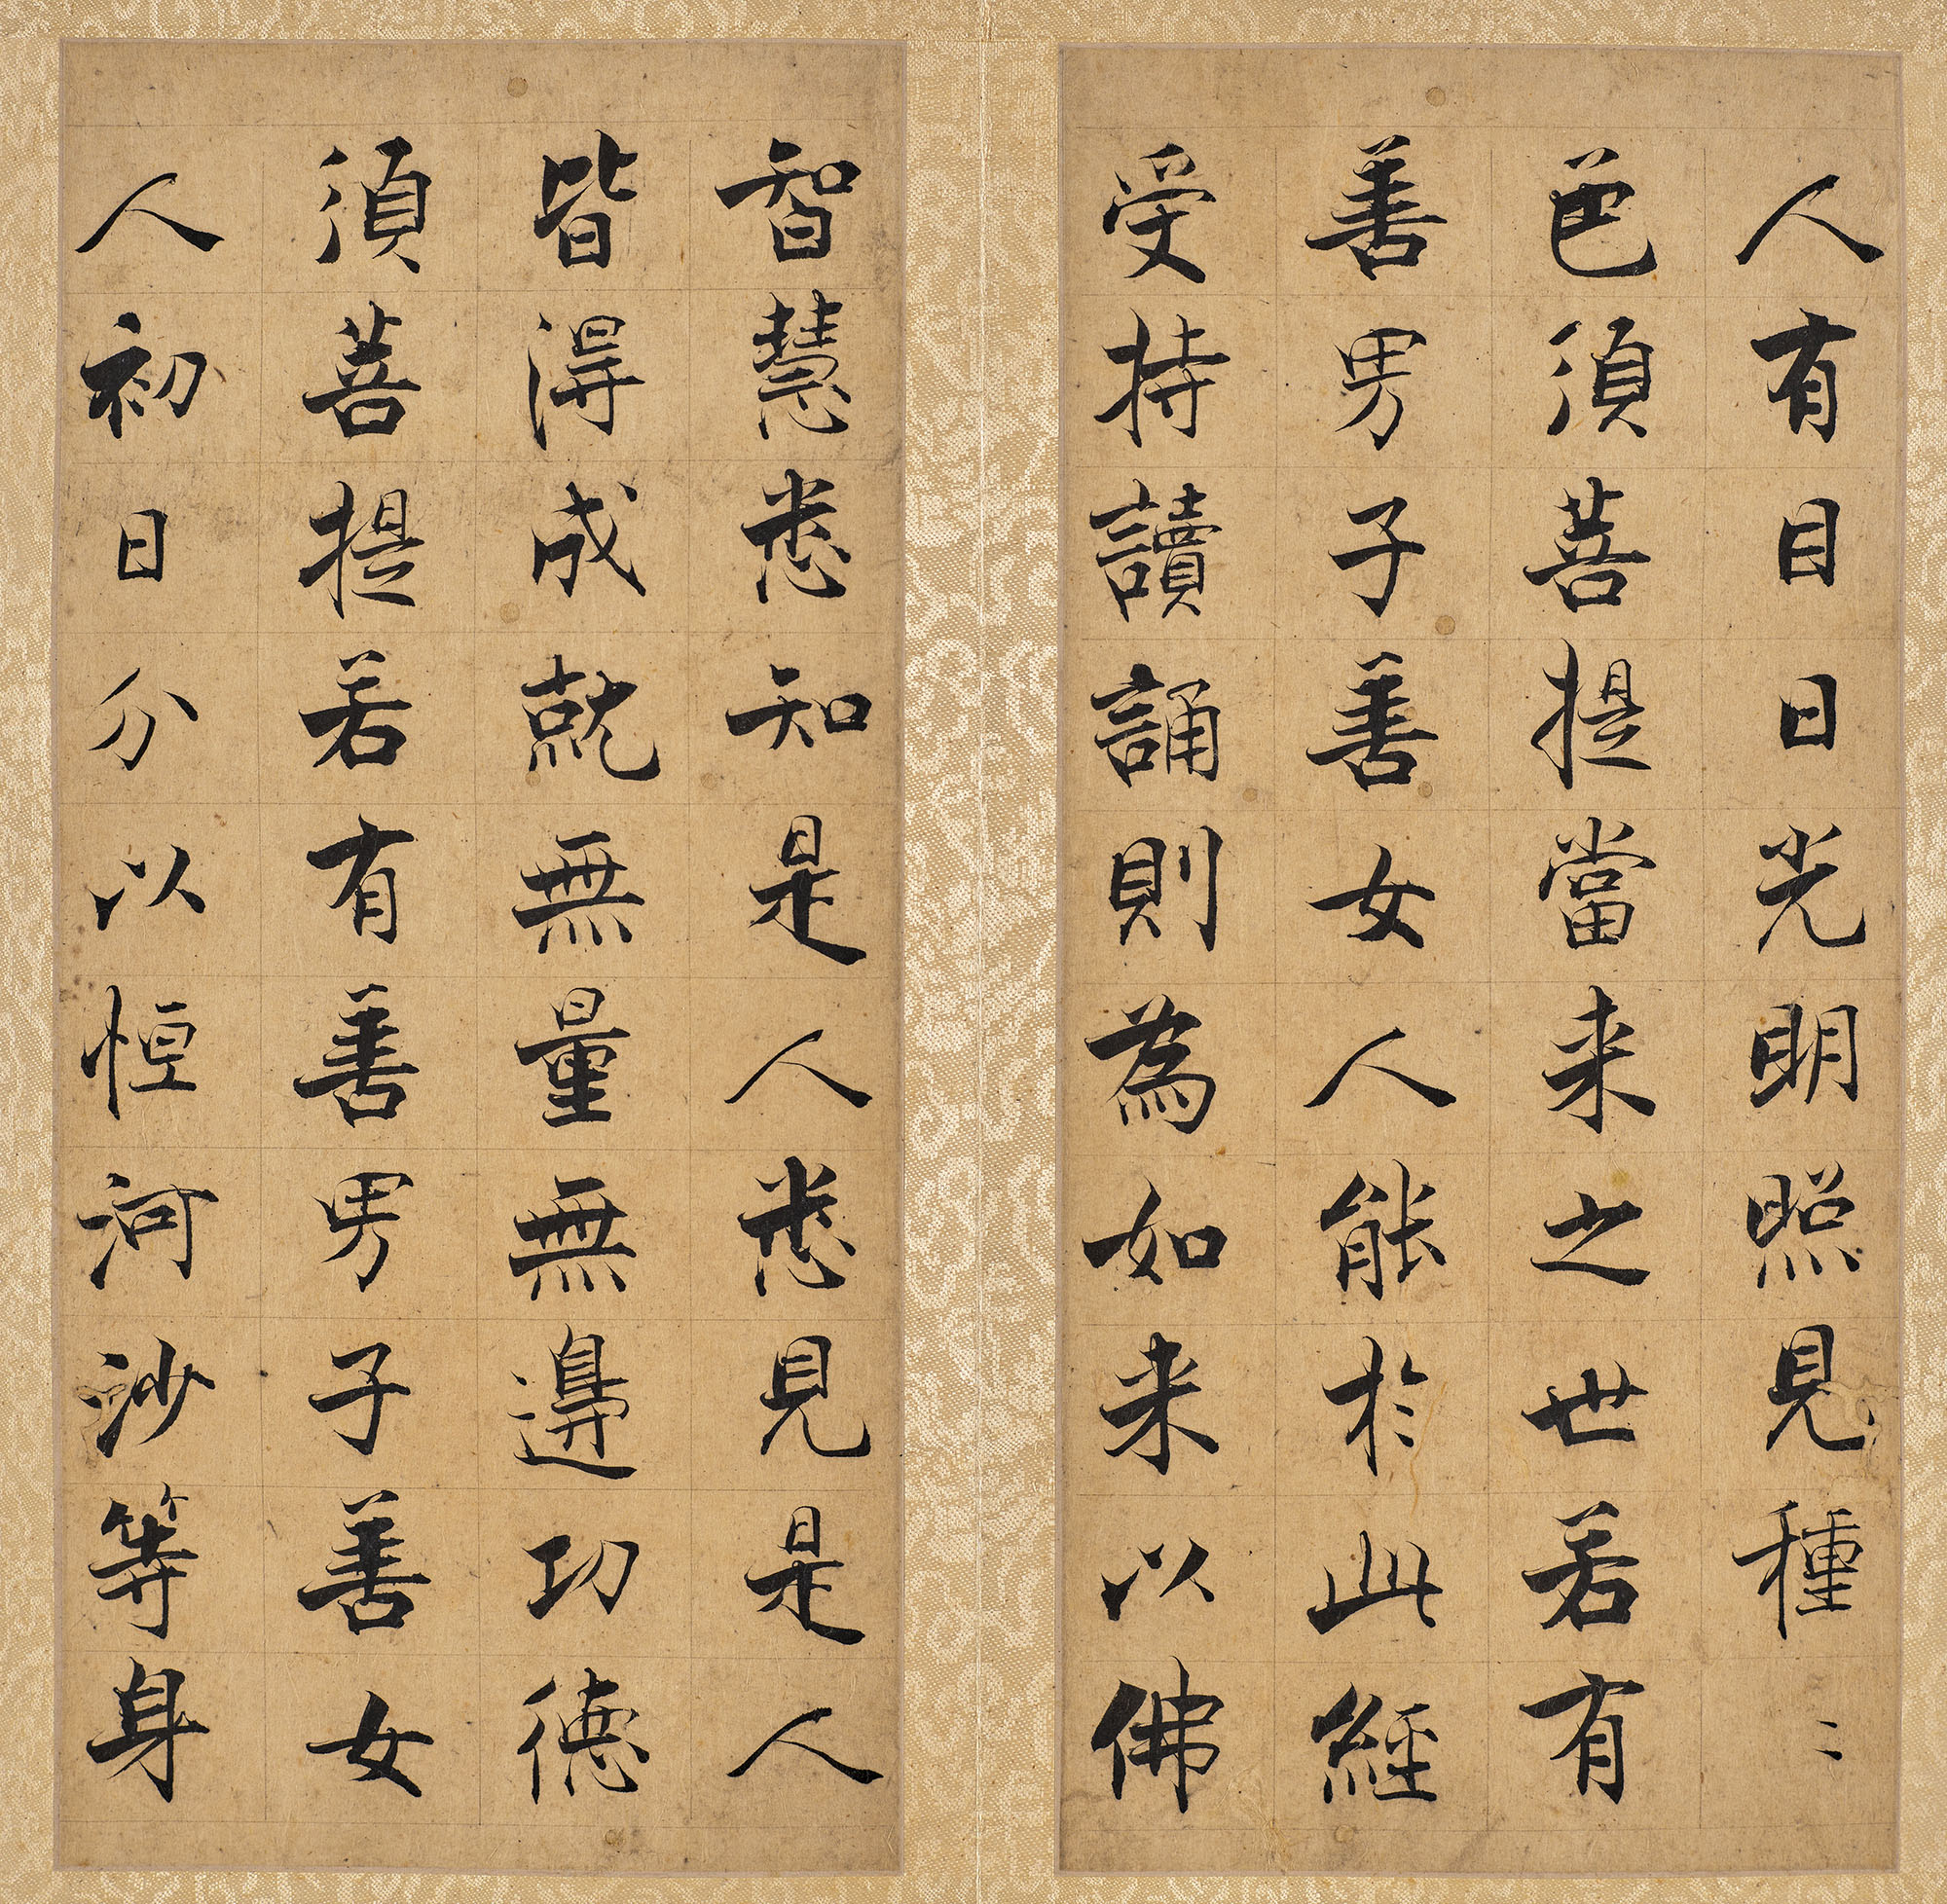 人有目日光明照見種〻
色須菩提當来之世若有
善男子善女人能於此經
受持讀誦則為如来以佛
智慧悉知是人悉見是人
皆淂成就無量無邊功德
須菩提若有善男子善女
人初日分以恒河沙等身